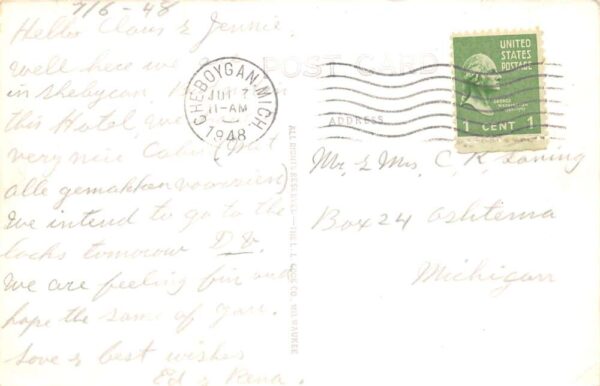 7/6-48
Hello Claus & Jennie.
Well here we
in Shebygan.
this Hotel, we
very nice Cabin (met
alle gemakken voorzien)
We intend to go to the
locks tomorow D.V.
We are feeling fin and
hope the same of you.
Love & best wishes
Ed & Rena.
POST CARD
CHEBOYGAN, MICH.
JUL 7
11-AM
1948
UNITED
STATES
POSTAGE
GEORGE
WASHINGTON
1 CENT 1
ADDRESS
Mr. & Mrs. C. K. Loning
Box 24 Oshtema
Michigan
ALL RIGHTS RESERVED—THE L. L. COOK CO. MILWAUKEE